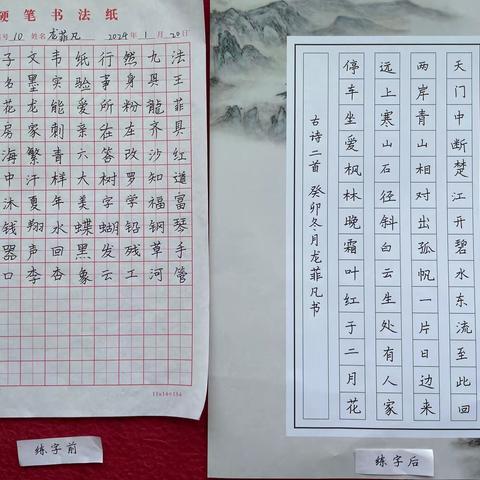 硬笔书法纸
号 10 姓名 龙菲凡 2024年1月20日
子文韦纸行然九法
名墨实验事身具王
花龙能爱所粉龍菲
房家刺亲在左齐具
海繁青六答改沙红
中汗样大树罗知道
沐夏年美字学福富
钱翔水蝶蝴铅钢琴
器声回黑发残草手
口李杏象云工河管
练字前
天门中断楚江开碧水东流至此回
两岸青山相对出孤帆一片日边来
远上寒山石径斜白云生处有人家
停车坐爱枫林晚霜叶红于二月花
古诗二首 癸卯冬月龙菲凡书
练字后